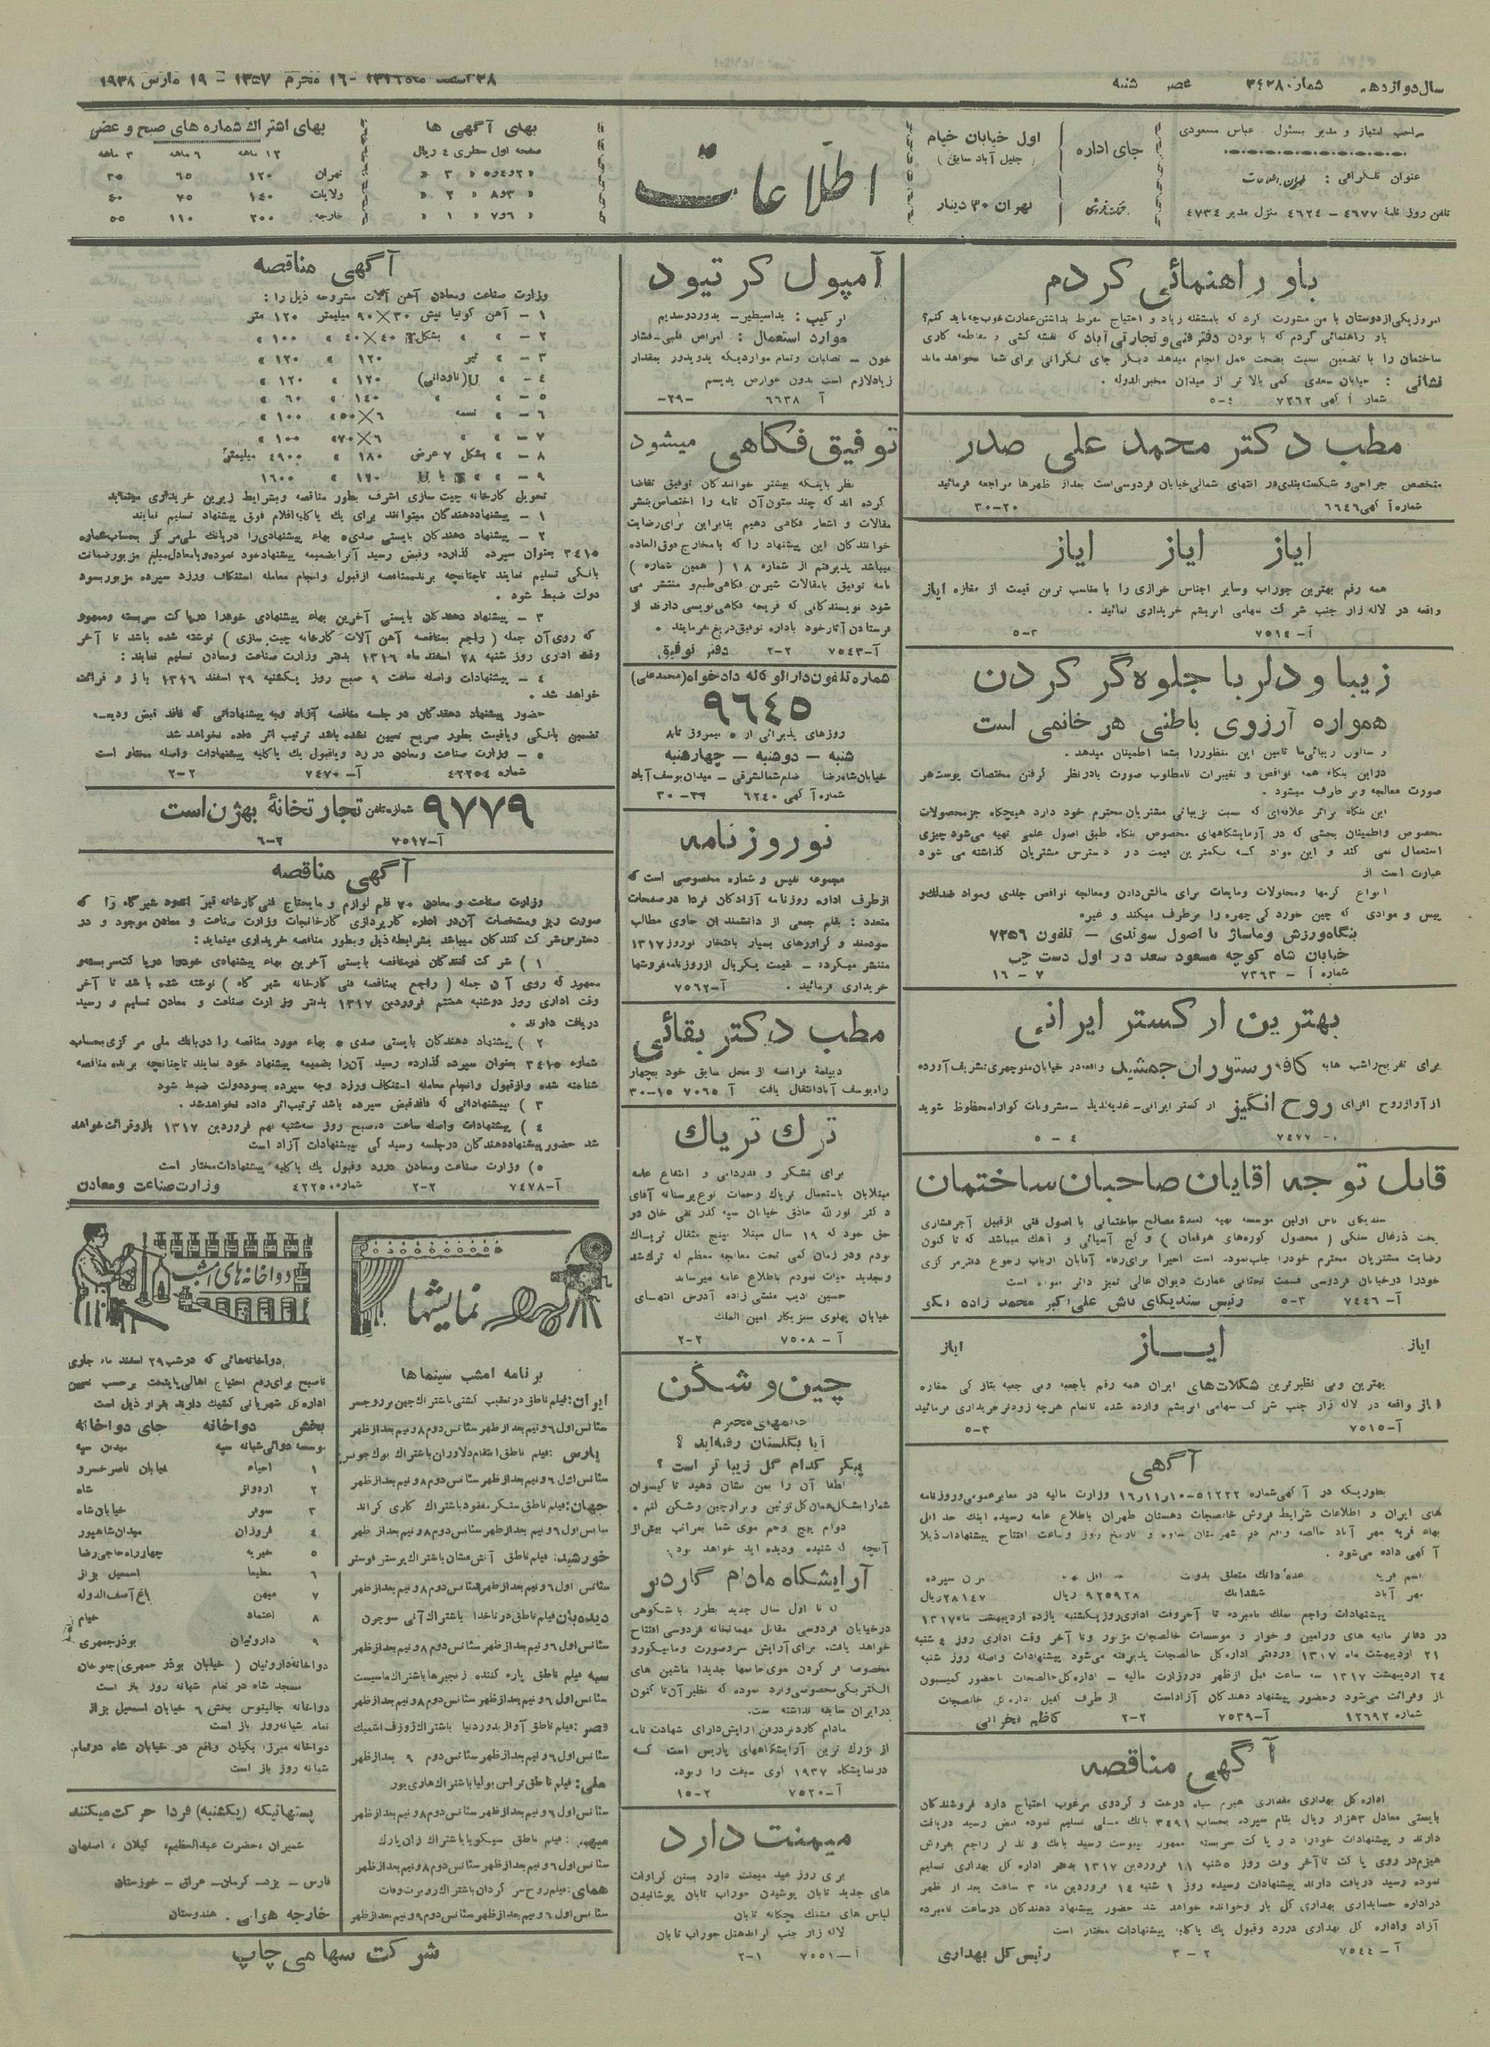 سال دوازدهم شماره ۳۴۳۸ عصر شنبه
۲۸ اسفند ماه ۱۳۱۶ - ۱۶ محرم ۱۳۵۷ - ۱۹ مارس ۱۹۳۸
صاحب امتیاز و مدیر مسئول. عباس مسعودی
عنوان تلگرافی: طهران. اطلاعات
تلفن روزنامه ۴۶۷۷ - ۴۶۲۴ منزل مدیر ۴۷۳۴
جای اداره
اول خیابان خیام
(جلیل آباد سابق)
تهران ۳۰ دینار
اطلاعات
بهای آگهی ها
صفحه اول سطری ٤ ریال
بهای اشتراك شماره های صبح و عصر
۱۲ ماهه ٦ ماهه ۳ ماهه
تهران ۱۲۰ ٦٥ ۳٥
ولایات ۱٤۰ ۷٥ ٤۰
خارجه ۲۰۰ ۱۱۰ ٥٥
باو راهنمائی کردم
امروز یکی از دوستان با من مشورت کرد که بامشغله زیاد و احتیاج مفرط بداشتن عمارت خوب چه باید کنم؟
باو راهنمائی کردم که با بودن دفتر فنی و تجارتی آباد که نقشه کشی و مقاطعه کاری
ساختمان را با تضمین نسبت بصحت عمل انجام میدهد دیگر جای نگرانی برای شما نخواهد ماند
نشانی: خیابان سعدی کمی بالا تر از میدان مخبرالدوله.
شماره آگهی ۷۲٦۲
مطب دکتر محمد علی صدر
متخصص جراحی و شکسته بندی در انتهای شمالی خیابان فردوسی است بعداز ظهرها مراجعه فرمائید
شماره آگهی ٦٦٤٦ ۲۰-۳۰
ایاز ایاز ایاز
همه رقم بهترین جوراب وسایر اجناس خرازی را با مناسب ترین قیمت از مغازه ایاز
واقعه در لاله زار جنب شرکت سهامی ابریشم خریداری نمائید.
آ- ۷٥۱٤ ۳-٥
زیبا و دلربا جلوه گر کردن
همواره آرزوی باطنی هر خانمی است
و سالون زیبائی ما تامین این منظور را بشما اطمینان میدهد.
دراین بنگاه همه نواقص و تغییرات نامطلوب صورت بادرنظر گرفتن مختصات پوست هر
صورت معالجه و بر طرف میشود.
این بنگاه براثر علاقه‌ای که نسبت بزیبائی مشتریان محترم خود دارد هیچگاه جز محصولات
مخصوص واطمینان بخشی که در آزمایشگاههای مخصوص بنگاه طبق اصول علمی تهیه می‌شود چیزی
استعمال نمی کند و این مواد که بکمترین قیمت در دسترس مشتریان گذاشته می شود
عبارت است از
انواع کرمها ومحلولات ومایعات برای مالش دادن ومعالجه نواقص جلدی ومواد ضدلك و
پیس و موادی که چین خوردگی چهره را برطرف میکند و غیره
بنگاه ورزش و ماساژ با اصول سوئدی - تلفون ۷۲٥٦
خیابان شاه کوچه مسعود سعد در اول دست چپ
شماره آ - ۷۳٦۳ ۷ - ۱٦
بهترین ارکستر ایرانی
برای تفریح راشب هابه کافه رستوران جمشید واقعه در خیابان منوچهری تشریف آورده
از آواز روح افزای روح انگیز ارکستر ایرانی-اغذیه لذیذ-مشروبات گوارا محظوظ شوید
۷٤۷۷ ٤ - ٥
قابل توجه اقایان صاحبان ساختمان
سندیکای ناش اولین موسسه تهیه کننده مصالح ساختمانی با اصول فنی از قبیل آجرفشاری
پخت ذرغال سنگی (محصول کوره‌های هوفمان) و گچ آسیائی و آهك میباشد که تا کنون
رضایت مشتریان محترم خودرا جلب نموده است اخیرا برای رفاه آقایان ارباب رجوع دفتر مرکزی
خودرا در خیابان فردوسی قسمت تحتانی عمارت دیوان عالی تمیز دائر نموده است
آ- ۷٤٤٦ ۳-٥ رئیس سندیکای ناش علی اکبر محمد زاده
ایاز ایاز ایاز
بهترین وبی نظیر ترین شکلات‌های ایران همه رقم باجعبه وبی جعبه بتازگی مغازه
ایاز واقعه در لاله زار جنب شرکت سهامی ابریشم وارده شده تاتمام هرچه زودتر خریداری فرمائید
آ-۷٥۱٥ ۳-٥
آگهی
بطوریکه در آگهی شماره ٥۱۲۲۲-۱۰ر۱۱ر۱٦ وزارت مالیه در معابر عمومی وروزنامه
های ایران و اطلاعات شرایط فروش خالصجات دهستان طهران باطلاع عامه رسیده اینك حد اقل
بهاء قریه مهر آباد خالصه واقع در شهرستان ساوه و تاریخ روز وساعت افتتاح پیشنهادات ذیلا
آگهی داده می‌شود.
مهر آباد ششدانك ۹۲٥۹۳۸ ریال ۲۸۱٤۷ ریال
پیشنهادات راجع بملك نامبرده تا آخر وقت اداری روز یکشنبه یازده اردیبهشت ماه ۱۳۱۷
در دفاتر مالیه های ورامین و خوار و موسسات خالصجات مزبور و تا آخر وقت اداری روز ٤ شنبه
۲۱ اردیبهشت ماه ۱۳۱۷ دردفتر اداره کل خالصجات پذیرفته می‌شود پیشنهادات واصله روز شنبه
۲٤ اردیبهشت ۱۳۱۷ سه ساعت قبل از ظهر دروزارت مالیه - اداره کل خالصجات باحضور کمیسیون
باز وقرائت می‌شود وحضور پیشنهاد دهندگان آزاد است از طرف کفیل اداره کل خالصجات
شماره ۱۲٦۹۲ آ-۷٥۳۹ ۲-۲ کاظم فخرائی
آگهی مناقصه
اداره کل بهداری مقداری هیزم سیاه درخت و کردوی مرغوب احتیاج دارد فروشندگان
بایستی معادل ۳هزار ریال بنام سپرده بحساب ۳٤۹۱ بانك ملی تسلیم نموده قبض رسید دریافت
دارند و پیشنهادات خودرا در پاکت سربسته ممهور بپیوست رسید بانك و قید راجع بفروش
هیزم در روی پاکت تا آخر وقت روز ٥شنبه ۱۱ فروردین ۱۳۱۷ بدفتر اداره کل بهداری تسلیم
نموده رسید دریافت دارند پیشنهادات رسیده روز ۱ شنبه ۱٤ فروردین ماه ۳ ساعت بعد از ظهر
دراداره حسابداری بهداری کل باز وخوانده خواهد شد حضور پیشنهاد دهندگان درساعت نامبرده
آزاد واداره کل بهداری دررد وقبول یك یاکلیه پیشنهادات مختار است
آ- ۷٥٤٤ ۲ - ۳ رئیس کل بهداری
آمپول کرتیود
ترکیب:
موارد استعمال: امراض قلبی-فشار
خون - تصلبات وتمام مواردیکه یدویدور بمقدار
زیادلازم است بدون عوارض یدیسم
آ ٦٦۳۸ -۲۹-
توفیق فکاهی میشود
نظر باینکه بیشتر خوانندگان توفیق تقاضا
کرده اند که چند ستون آن نامه را اختصاص بنشر
مقالات و اشعار فکاهی دهیم بنابراین برای رضایت
خوانندگان این پیشنهاد را که با مخارج فوق العاده
میباشد پذیرفتیم از شماره ۱۸ (همین شماره)
نامه توفیق بامقالات شیرین فکاهی طبع و منتشر می
شود نویسندگانی که قریحه فکاهی نویسی دارند از
فرستادن آثار خود باداره توفیق دریغ نفرمایند.
آ-۷٥٤۳ ۲-۲ دفتر توفیق
شماره تلفون دارالوکاله دادخواه (محمدعلی)
۹٦٤٥
روزهای پذیرائی از ٥ نیمروز تا ۸
شنبه - دوشنبه - چهارشنبه
خیابان شاه رضا ضلع شمالشرقی - میدان یوسف آباد
شماره آگهی ٦۲٤۰ ۲۹-۳۰
نوروز نامه
مجموعه نفیس و شماره مخصوصی است که
از طرف اداره روزنامه آزادگان فردا در صفحات
متعدد: بقلم جمعی از دانشمندان حاوی مطالب
سودمند و گراورهای بسیار بافتخار نوروز ۱۳۱۷
منتشر میگردد - قیمت یکریال از روزنامه فروشها
خریداری فرمائید. آ-۷٥٦۲
مطب دکتر بقائی
دیپلمه فرانسه از محل سابق خود بچهار
راه یوسف آباد انتقال یافت آ ۷۰٦٥ ۱٥-۳۰
ترك تریاك
برای تشکر و قدردانی و انتفاع عامه
مبتلایان باستعمال تریاك زحمات نوع پرستانه آقای
دکتر نورالله حاذق خیابان سپه گذر تقی خان در
حق خود که ۱۹ سال مبتلا بپنج مثقال تریاك
بودم ودر زمان کمی تحت معالجه معظم له ترك شد
وتجدید حیات نمودم باطلاع عامه میرساند
حسین ادیب منشی زاده آدرس انتهای
خیابان پهلوی سبزیکار امین الملك
آ - ۷٥۰۸ ۲-۲
چین و شکن
خانمهای محترم
آیا بگلستان رفته‌اید؟
پیکر کدام گل زیبا تر است؟
لطفا آن را بمن نشان دهید تا گیسوان
شمارا بشکل همان گل تزئین و پرازچین وشکن کنم.
دوام پیچ وخم موی شما بمراتب بیش از
آنچه که شنیده ودیده اید خواهد بود.
آرایشگاه مادام گاردنر
که تا اول سال جدید بطرز باشکوهی
در خیابان فردوسی مقابل مهمانخانه فردوسی افتتاح
خواهد یافت برای آرایش سروصورت ومانیکورو
مخصوصا فر کردن موی خانمها جدیدا ماشین های
الکتریکی مخصوصی وارد نموده که نظیر آن تا کنون
در ایران سابقه نداشته است.
مادام گاردنر درفن آرایش دارای شهادت نامه
از بزرك ترین آرایشگاههای پاریس است که
در نمایشگاه ۱۹۳۷ گوی سبقت را ربود.
آ-۷٥۲۰ ۲-۱٥
میمنت دارد
برای روز عید میمنت دارد بستن کراوات
های جدید تابان پوشیدن جوراب تابان پوشانیدن
لباس های قشنك بچگانه تابان
لاله زار جنب گراندهتل جوراب تابان
آ-۷۰٥۱ ۱-۲
آگهی مناقصه
وزارت صناعت ومعادن آهن آلات مشروحه ذیل را:
۱ - آهن کونیا نبش ۳۰×۹۰ میلیمتر ۱۲۰ متر
۲ - » » بشکل T ٤۰×٤۰ » ۱۰۰ »
۳ - » تیر ۱۲۰ » ۱۲۰ »
٤ - » U (ناودانی) ۱۲۰ » ۱۲۰ »
٥ - » » ۱٤۰ » ٦۰ »
٦ - » تسمه ٦×٥۰ » ۱۰۰ »
۷ - » » ٦×۷۰ » ۱۰۰ »
۸ - » بشکل ۷ عرض ۱۸۰ » ٤۹۰۰ میلیمتر
۹ - » » T یا U ۱٦۰ » ۱٦۰۰
تحویل کارخانه چیت سازی اشرف بطور مناقصه وبشرایط زیرین خریداری مینماید
۱ - پیشنهاد دهندگان میتوانند برای یك یا کلیه اقلام فوق پیشنهاد تسلیم نمایند
۲ - پیشنهاد دهندگان بایستی صدی ٥ بهاء پیشنهادی را در بانك ملی مرکز بحساب شماره
۳٤۱٥ بعنوان سپرده گذارده وقبض رسید آنرا بضمیمه پیشنهاد خود نموده و یا معادل مبلغ مزبور ضمانت
بانکی تسلیم نمایند تاچنانچه برنده مناقصه از قبول وانجام معامله استنکاف ورزد سپرده مزبور بسود
دولت ضبط شود.
۳ - پیشنهاد دهندگان بایستی آخرین بهاء پیشنهادی خودرا در پاکت سربسته وممهور
که روی آن جمله (راجع بمناقصه آهن آلات کارخانه چیت سازی) نوشته شده باشد تا آخر
وقت اداری روز شنبه ۲۸ اسفند ماه ۱۳۱٦ بدفتر وزارت صناعت ومعادن تسلیم نمایند:
٤ - پیشنهادات واصله ساعت ۹ صبح روز یکشنبه ۲۹ اسفند ۱۳۱٦ باز و قرائت
خواهد شد.
حضور پیشنهاد دهندگان در جلسه مناقصه آزاد وبه پیشنهاداتی که فاقد قبض ودیعه
تضمین بانکی وباقیمت بطور صریح تعیین نشده باشد ترتیب اثر داده نخواهد شد
٥ - وزارت صناعت ومعادن در رد ویاقبول یك یاکلیه پیشنهادات واصله مختار است
شماره ٤۲۲٥٤ آ- ۷٤۷۰ ۲-۲
۹۷۷۹ شماره تلفن تجارتخانهٔ بهژن است
آ-۷٥۱۷ ۲-٦
آگهی مناقصه
وزارت صناعت و معادن ۷۰ قلم لوازم و مایحتاج فنی کارخانه قیر اندود شیرگاه را که
صورت ریز ومشخصات آن در اداره کارپردازی کارخانجات وزارت صناعت و معادن موجود و در
دسترس شرکت کنندگان میباشد بشرایط ذیل وبطور مناقصه خریداری مینماید:
۱) شرکت کنندگان درمناقصه بایستی آخرین بهاء پیشنهادی خودرا در پاکت سربسته و
ممهور که روی آن جمله (راجع بمناقصه فنی کارخانه شیرگاه) نوشته شده باشد تا آخر
وقت اداری روز دوشنبه هشتم فروردین ۱۳۱۷ بدفتر وزارت صناعت و معادن تسلیم و رسید
دریافت دارند.
۲) پیشنهاد دهندگان بایستی صدی ٥ بهاء مورد مناقصه را دربانك ملی مرکزی بحساب
شماره ۳٤۱٥ بعنوان سپرده گذارده رسید آن را بضمیمه پیشنهاد خود نمایند تاچنانچه برنده مناقصه
شناخته شده وازقبول وانجام معامله استنکاف ورزد وجه سپرده بسود دولت ضبط شود
۳) بپیشنهاداتی که فاقد قبض سپرده باشد ترتیب اثر داده نخواهد شد.
٤) پیشنهادات واصله ساعت ده صبح روز سه‌شنبه نهم فروردین ۱۳۱۷ باز وقرائت خواهد
شد حضور پیشنهاد دهندگان در جلسه رسیدگی پیشنهادات آزاد است
٥) وزارت صناعت ومعادن دررد وقبول یك یاکلیه پیشنهادات مختار است
آ-۷٤۷۸ ۲-۲ شماره ٤۲۲٥۰ وزارت صناعت و معادن
نمایشها
برنامه امشب سینماها
ایران: فیلم ناطق در تعقیب کشتی باشتراك جین بروجسر
سئانس اول ٦ ونیم بعداز ظهر سئانس دوم ۸ ونیم بعداز ظهر
پارس: فیلم ناطق انتقام دلاوران باشتراك بوك جونس
سئانس اول ٦ ونیم بعداز ظهر سئانس دوم ۸ ونیم بعداز ظهر
جهان: فیلم ناطق سنگر مفقود باشتراك گاری گراند
سئانس اول ٦ ونیم بعداز ظهر سئانس دوم ۸ ونیم بعداز ظهر
خورشید: فیلم ناطق آتش فشان باشتراك پرستر فوستر
سئانس اول ٦ ونیم بعداز ظهر سئانس دوم ۸ ونیم بعداز ظهر
دیده‌بان: فیلم ناطق در ناخدا باشتراك آنی سوجرن
سئانس اول ٦ ونیم بعداز ظهر سئانس دوم ۸ ونیم بعداز ظهر
سپه فیلم ناطق پاره کننده زنجیرها باشتراك ماسیست
سئانس اول ٦ ونیم بعداز ظهر سئانس دوم ۸ ونیم بعداز ظهر
قصر: فیلم ناطق آواز بدور دنیا باشتراك ژوزف اشمیك
سئانس اول ٦ ونیم بعداز ظهر سئانس دوم ۹ بعداز ظهر
ملی: فیلم ناطق تراس بولبا باشتراك هاری بور
سئانس اول ٦ ونیم بعداز ظهر سئانس دوم ۸ ونیم بعداز ظهر
میهن: فیلم ناطق سیکویا باشتراك ژان پارك
سئانس اول ٦ ونیم بعداز ظهر سئانس دوم ۸ ونیم بعداز ظهر
همای: فیلم روح سرگردان باشتراك روبرت دنات
سئانس اول ٦ ونیم بعداز ظهر سئانس دوم ۹ ونیم بعداز ظهر
دواخانه‌های امشب
دواخانه‌هائی که در شب ۲۹ اسفند ماه جاری
تاصبح برای رفع احتیاج اهالی پایتخت برحسب تعیین
اداره کل شهربانی کشیك دارند بقرار ذیل است
بخش دواخانه جای دواخانه
موسسه دوائی شبانه سپه میدان سپه
۱ احیاء خیابان ناصر خسرو
۲ اردوان شاه
۳ سوفر خیابان شاه
٤ فروزان میدان شاهپور
٥ خیریه چهار راه حاجی رضا
٦ عظیما اسمعیل بزاز
۷ میهن باغ آصف الدوله
۸ اعتماد خیام
۹ داروئیان بوذرجمهری
دواخانه داروئیان (خیابان بوذر جمهری) جلوخان
مسجد شاه در تمام شبانه روز باز است
دواخانه جالینوس بخش ٦ خیابان اسمعیل بزاز
تمام شبانه روز باز است
دواخانه میرزا یگیان واقع در خیابان شاه درتمام
شبانه روز باز است
پستهائیکه (یکشنبه) فردا حرکت میکنند
شمیران، حضرت عبدالعظیم، گیلان، اصفهان
فارس - یزد- کرمان- عراق - خوزستان
خارجه هوائی. هندوستان
شرکت سهامی چاپ